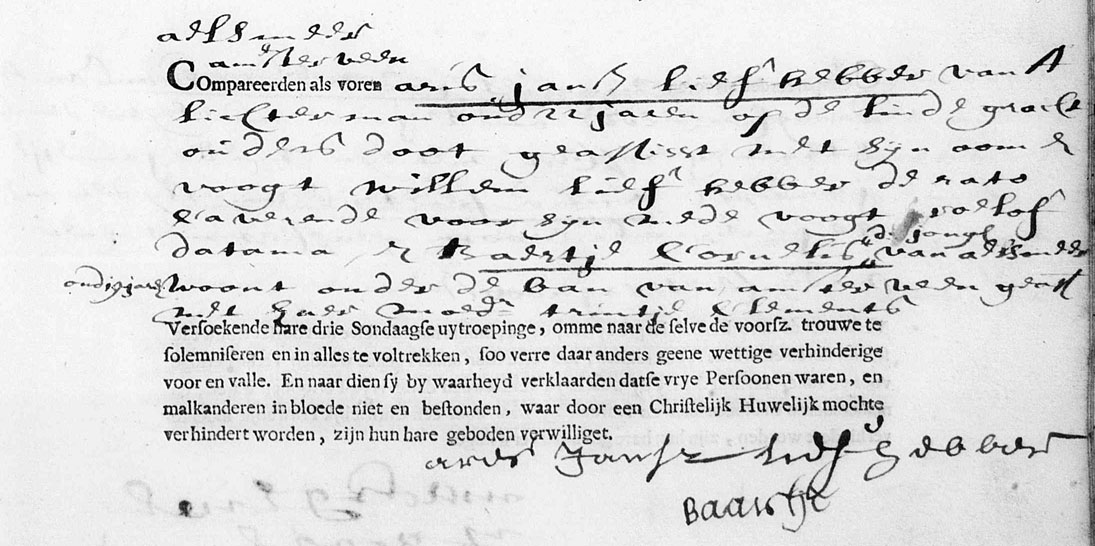 aelsmeer
amsterveen
Compareerden als voren aris jansz liefhebber van A
lichterman oud 22 jaren op de linde gracht
ouders doot geassisst met sijn oom &
voogt willem liefhebber de rato
caverende voor sijn mede voogt roelof
datama & baertje Cornelis de jonge van aelsmeer
oud 19 jaren woont onder de ban van amsterveen geasst
met haer moeder trintje Clements
Versoekende hare drie Sondaagse uytroepinge, omme naar de selve de voorsz. trouwe te
solemniseren en in alles te voltrekken, soo verre daar anders geene wettige verhinderige
voor en valle. En naar dien sy by waarheyd verklaarden datse vrye Persoonen waren, en
malkanderen in bloede niet en bestonden, waar door een Christelijk Huwelijk mochte
verhindert worden, zijn hun hare geboden verwilliget.
ares Jansz liefhebber
Baartje